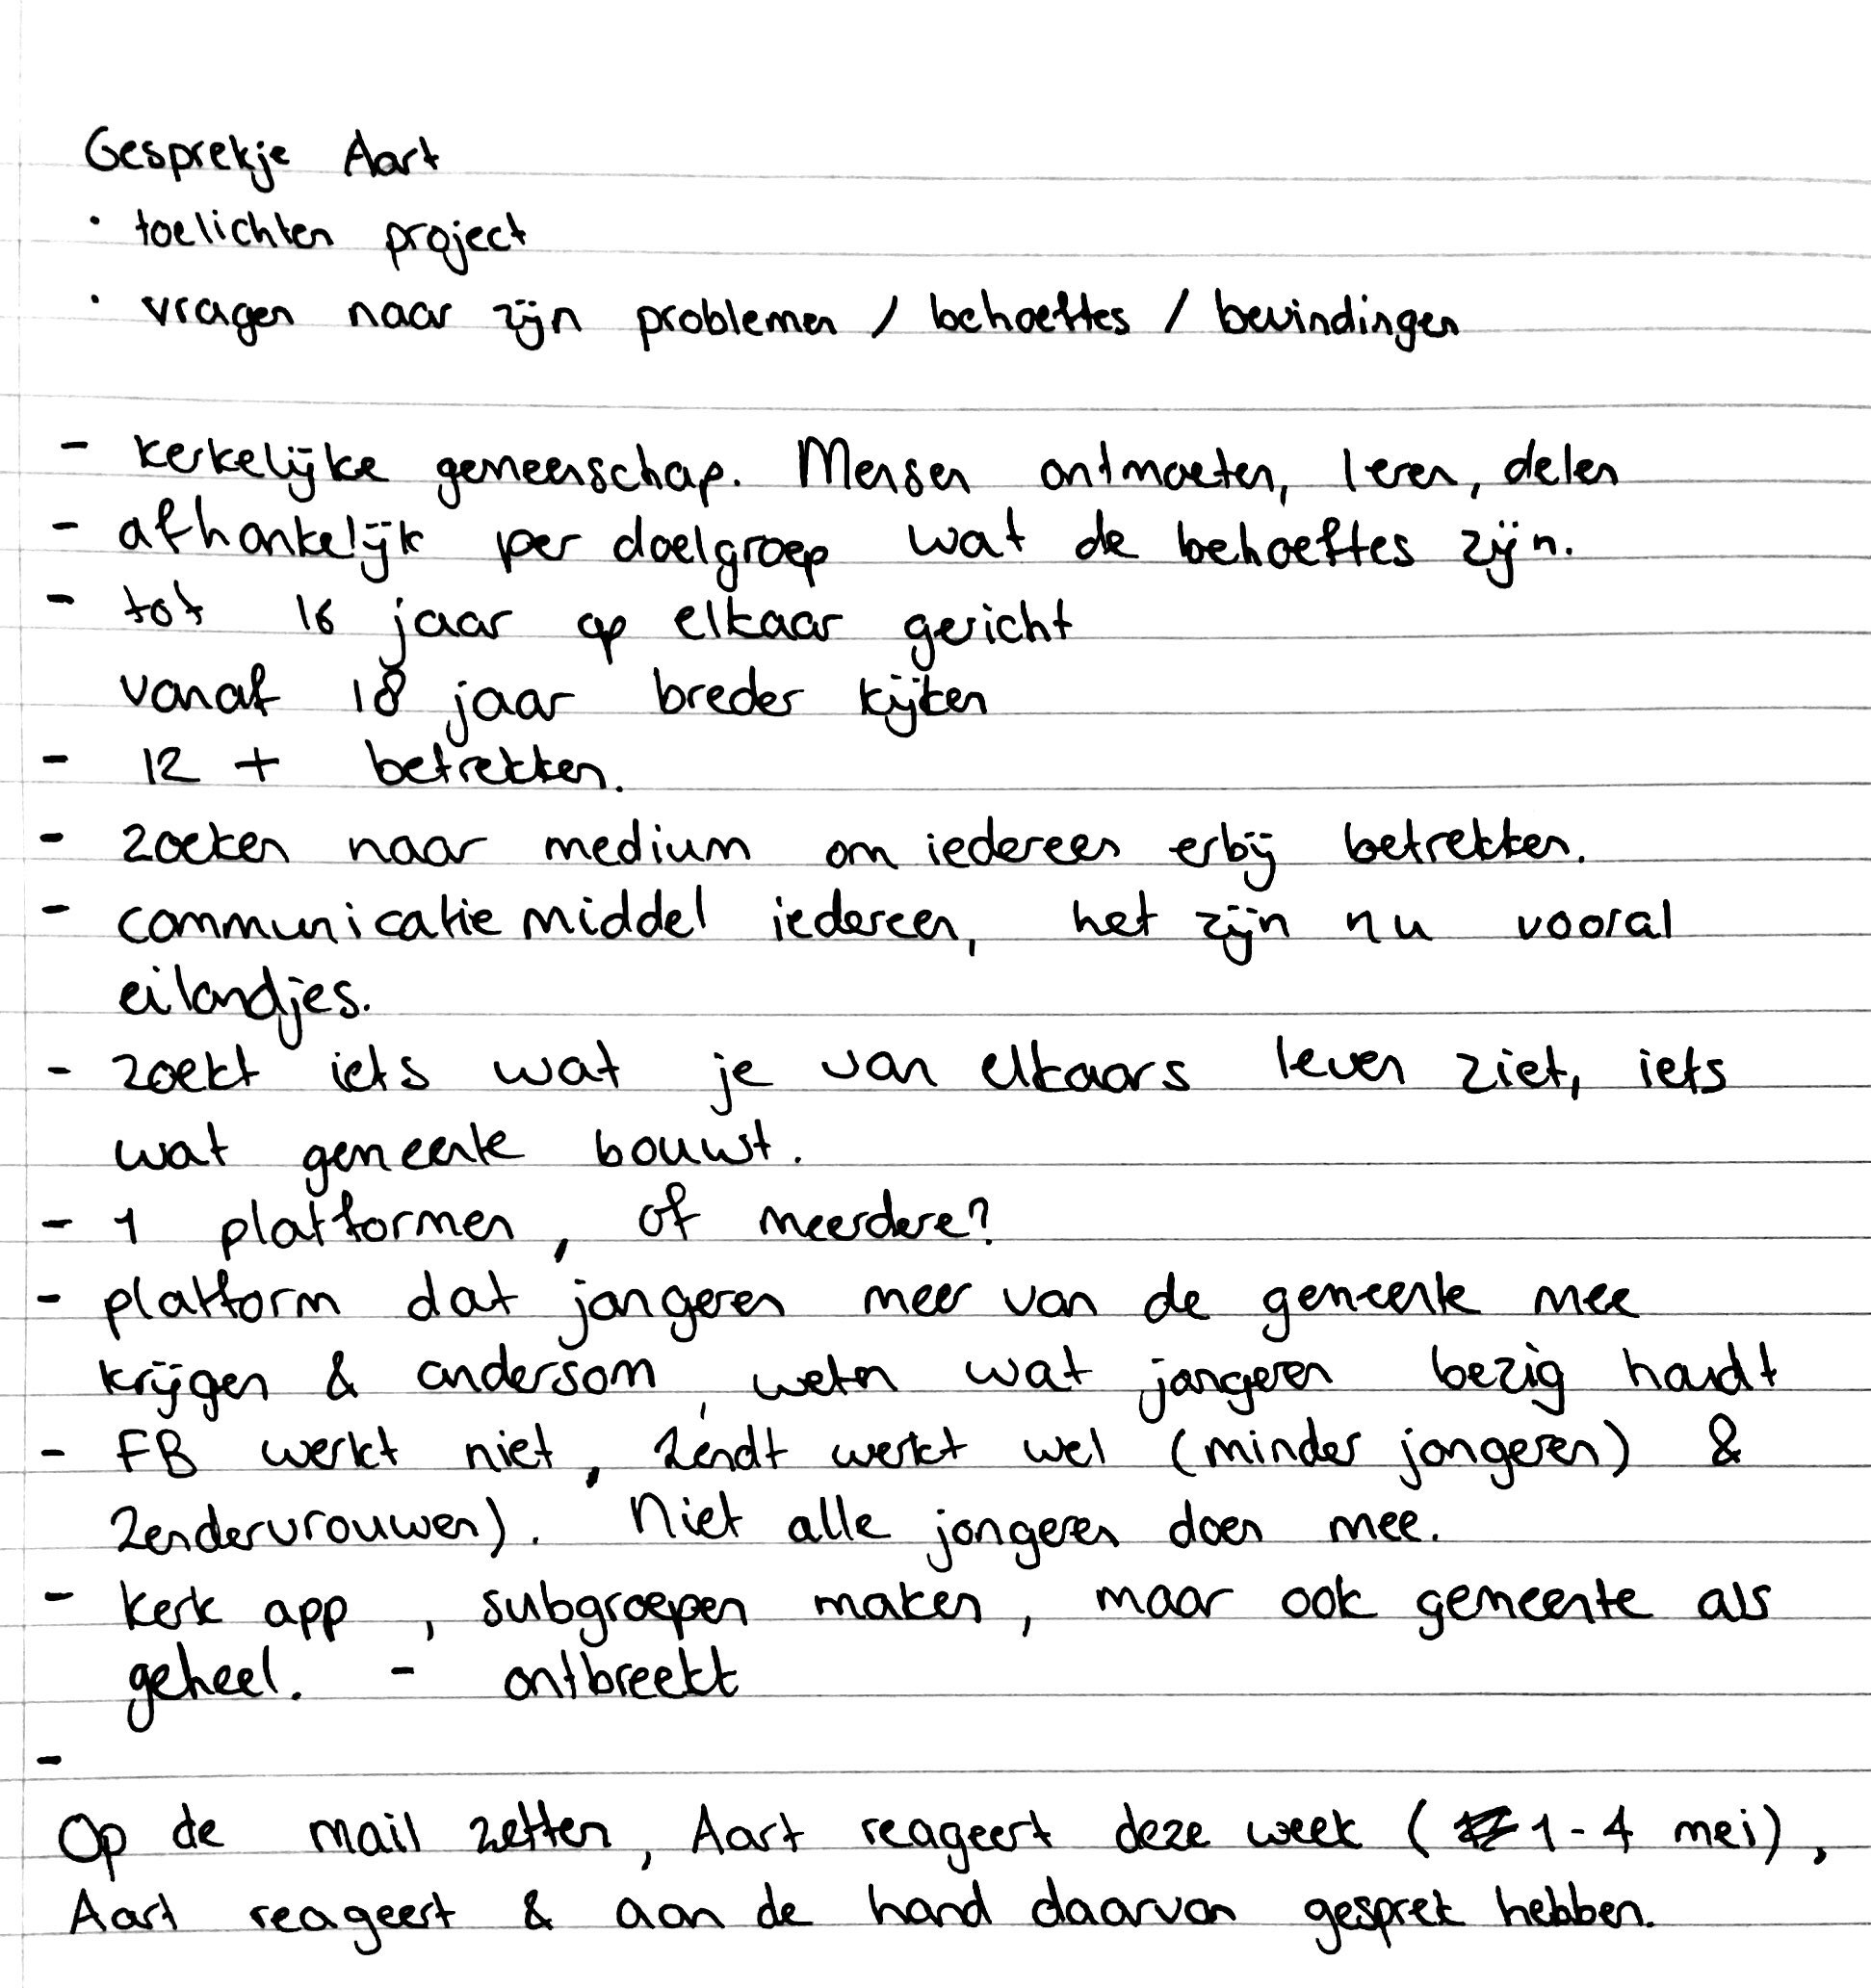 Gesprekje Aart
· toelichten project
· vragen naar zijn problemen / behoeftes / bevindingen
- kerkelijke gemeenschap. Mensen ontmoeten, leren, delen
- afhankelijk per doelgroep wat de behoeftes zijn.
- tot 16 jaar op elkaar gericht
vanaf 18 jaar breder kijken
- 12 + betrekken.
- zoeken naar medium om iedereen erbij betrekken.
- communicatie middel iedereen, het zijn nu vooral
eilandjes.
- zoekt iets wat je van elkaars leven ziet, iets
wat gemeente bouwt.
- 1 platformen, of meerdere?
- platform dat jongeren meer van de gemeente mee
krijgen & andersom, weten wat jongeren bezig houdt
- FB werkt niet, Zendt werkt wel (minder jongeren) &
Zendervrouwen). Niet alle jongeren doen mee.
- kerk app, subgroepen maken, maar ook gemeente als
geheel. - ontbreekt
-
Op de mail zetten, Aart reageert deze week (1-4 mei),
Aart reageert & aan de hand daarvan gesprek hebben.